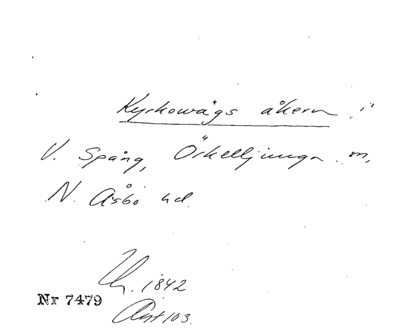 Kyrkowägs åkern i
V. Spång, Örkelljunga sn,
N. Åsbo hd.
1842
Nr 7479
Akt 103.